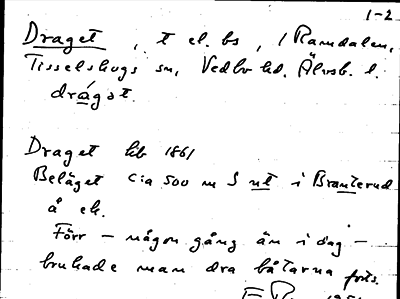 1-2
Draget, t el. bs, i Ramdalen,
Tisselskogs sn, Vedbo hd, Älvsb. l.
drágət.
Draget hb 1861
Beläget cia 500 m S nt i Branterud
å ek.
Förr - någon gång än i dag -
brukade man dra båtarna forts.